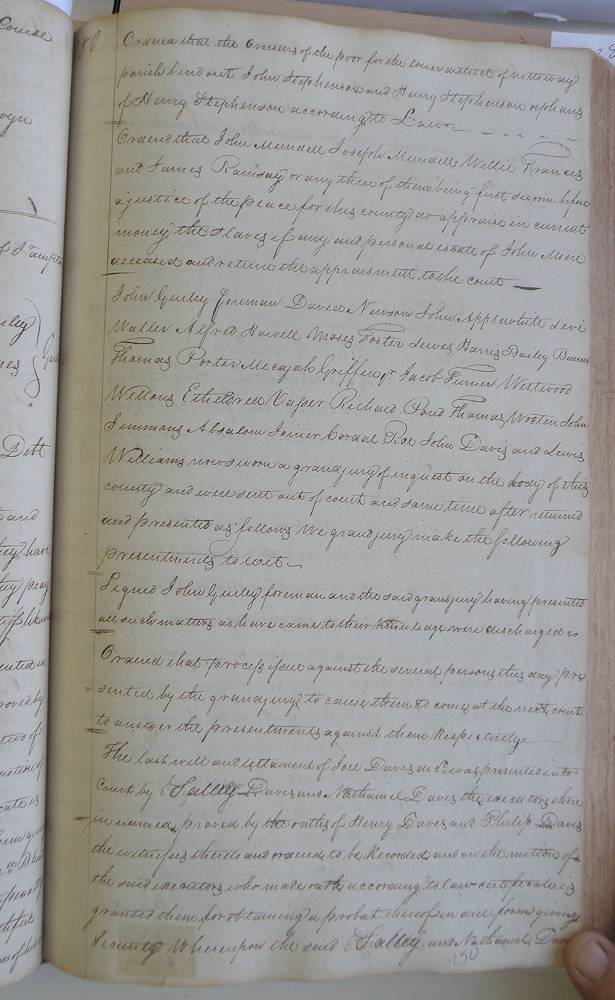 Course
Ordered that the Overseers of the poor for the lower district of Nottoway
parish bind out John Stephenson and Henry Stephenson orphans
of Henry Stephenson according to Law
Ordered that John Mundell Joseph Mundell Willie Francis
and James Ramsay or any three of them being first sworn before
a justice of the peace for this county do appraise in current
money the slaves if any and personal estate of John More
deceased and return the appraisment to the court
John Gurley foreman David Newsom John Applewhite Levi
Waller Alfred Howell Moses Foster Lewis Harris Bailey Barnes
Thomas Porter Mecajah Griffin Jr Jacob Turner Westwood
Wellons Etheldred Vasser Richard Pond Thomas Wooten John
Simmons Absalom Joiner Cordal Roe John Davis and Lewis
Williams now sworn a grandjury of inquest on the body of this
county and were sent out of court and some time after returned
and presented as follows We grandjury make the following
presentments to wit
Signed John Gurley foreman and the said grandjury having presented
all such matters as have came to their knowledge were discharged
Ordered that process issue against the several persons this day pre
sented by the grandjury to cause them to come at the next court
to answer the presentments against them Respectively
The last will and testament of Joel Davis decd. was presented into
Court by Salley Davis and Nathaniel Davis the executors there
in named proved by the oaths of Henry Davis and Philip Davis
the witnesses thereto and ordered to be Recorded and on the motion of
the said executors who made oath according to law certificate is
granted them for obtaining a probat thereof in due form giving
Security Whereupon the said Salley and Nathaniel Davis
150
Debt
and